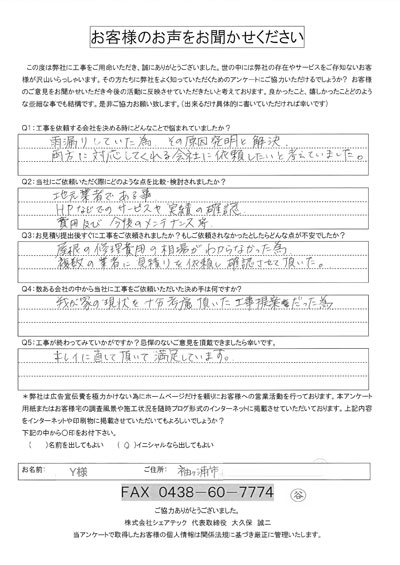 お客様のお声をお聞かせください
この度は弊社に工事をご用命いただき、誠にありがとうございました。世の中には弊社の存在やサービスをご存知ないお客
様が沢山いらっしゃいます。その方たちに弊社をよく知っていただくためのアンケートにご協力いただけるでしょうか? お客様
のご意見をお聞かせいただき今後の活動に反映させていただきたいと考えております。良かったこと、嬉しかったことどのよう
な些細な事でも結構です。是非ご協力お願い致します。(出来るだけ具体的に書いていただければ幸いです)
Q1:工事を依頼する会社を決める時にどんなことで悩まれていましたか?
雨漏りしていた為 その原因発明と解決
両方に対応してくれる会社に依頼したいと考えていました。
Q2:当社にご依頼いただく際にどのような点を比較・検討されましたか?
地元業者である事
HPなどでのサービスや実績の確認
費用及び今後のメンテナンス等
Q3:お見積り提出後すぐに工事をご依頼されましたか?もしご依頼されなかったとしたらどんな点が不安でしたか?
屋根の修理費用の相場がわからなかった為
複数の業者に見積りを依頼し確認させて頂いた。
Q4:数ある会社の中から当社に工事をご依頼いただいた決め手は何ですか?
我が家の現状を十分考慮頂いた工事提案だった為
Q5:工事が終わってみていかがですか?忌憚のないご意見を頂戴できましたら幸いです。
キレイに直して頂いて満足しています。
*弊社は広告宣伝費を極力かけない為にホームページだけを頼りにお客様への営業活動を行っております。本アンケート
用紙またはお客様宅の調査風景や施工状況を随時ブログ形式のインターネットに掲載させていただいております。上記内容
をインターネットや印刷物に掲載させていただいてもよろしいでしょうか?
下記の中から〇印をお付下さい。
( )名前を出してもよい (〇)イニシャルなら出してもよい
お名前: Y様 ご住所: 袖ヶ浦市
FAX 0438-60-7774 谷
ご協力ありがとうございました。
株式会社シェアテック 代表取締役 大久保 誠二
当アンケートで取得したお客様の個人情報は関係法規に基づき厳正に管理いたします。